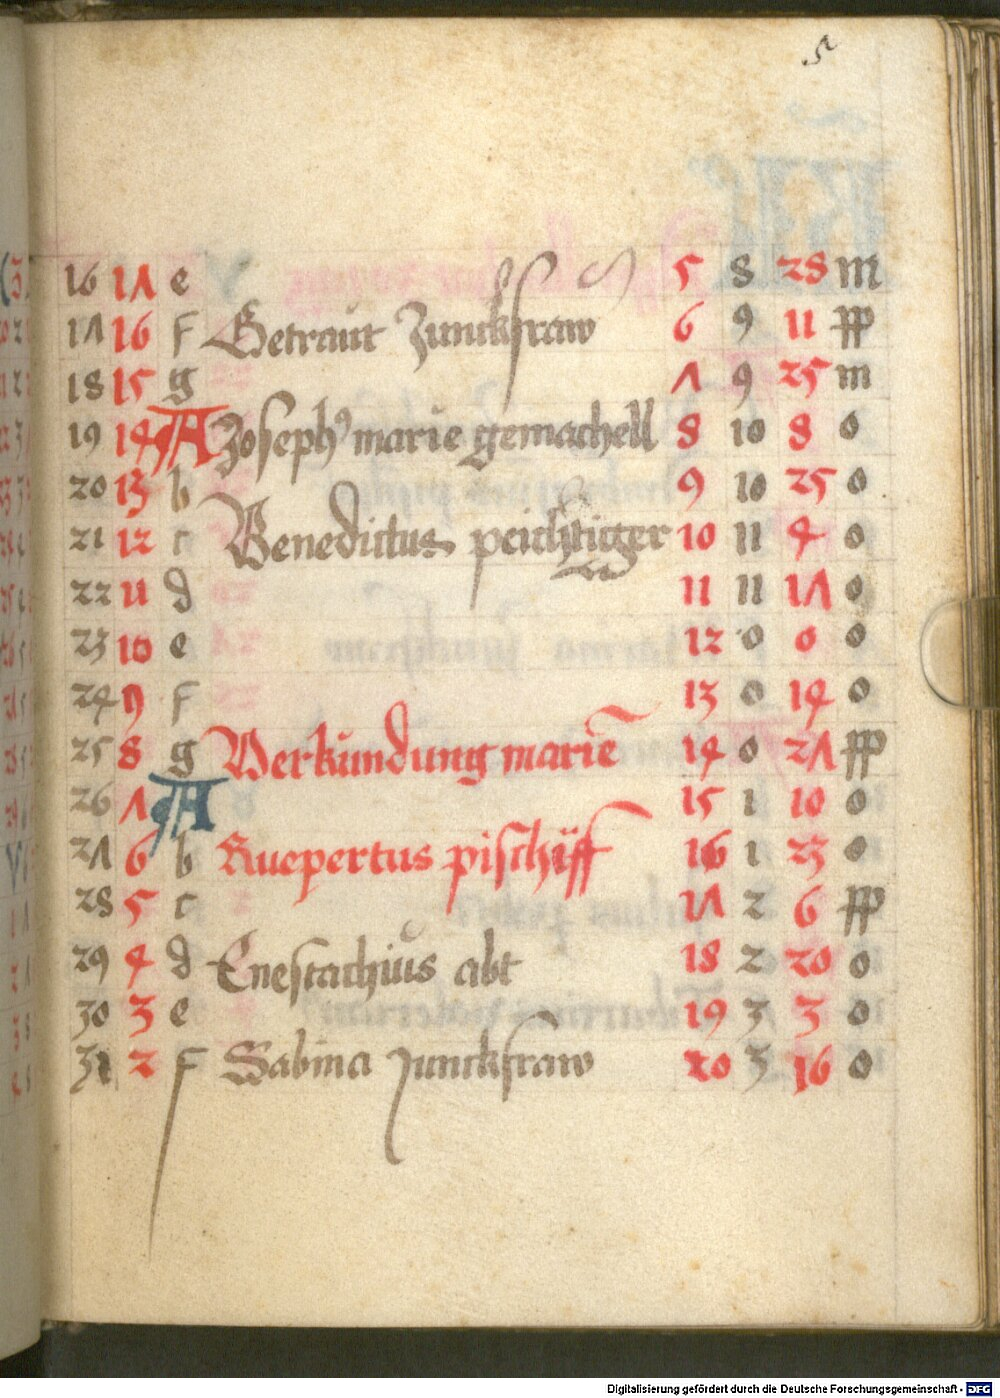 5
16 17 e 5 8 28 m
17 16 f Getraut Junckfraw 6 9 11 pp
18 15 g 7 9 25 m
19 14 A Joseph marie gemachell 8 10 8 0
20 13 b 9 10 25 0
21 12 c Benedictus peichtiger 10 11 4 0
22 11 d 11 11 17 0
23 10 e 12 0 0 0
24 9 f 13 0 14 0
25 8 g Verkundung marie 14 0 27 pp
26 7 A 15 1 10 0
27 6 b Ruepertus pischoff 16 1 23 0
28 5 c 17 2 6 pp
29 4 d Enestachius abt 18 2 20 0
30 3 e 19 3 3 0
31 2 f Sabina junckfraw 20 3 16 0
Digitalisierung gefördert durch die Deutsche Forschungsgemeinschaft - DFG